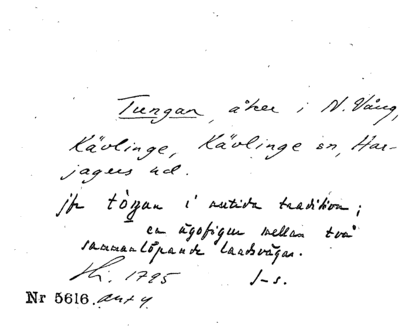 Tungan, åker i N. Vång,
Kävlinge, Kävlinge sn, Har-
jagers hd.
jfr tòŋan i nutida tradition;
en ägofigur mellan två
sammanlöpande landsvägar.
Hi. 1795 J-s.
Nr 5616.